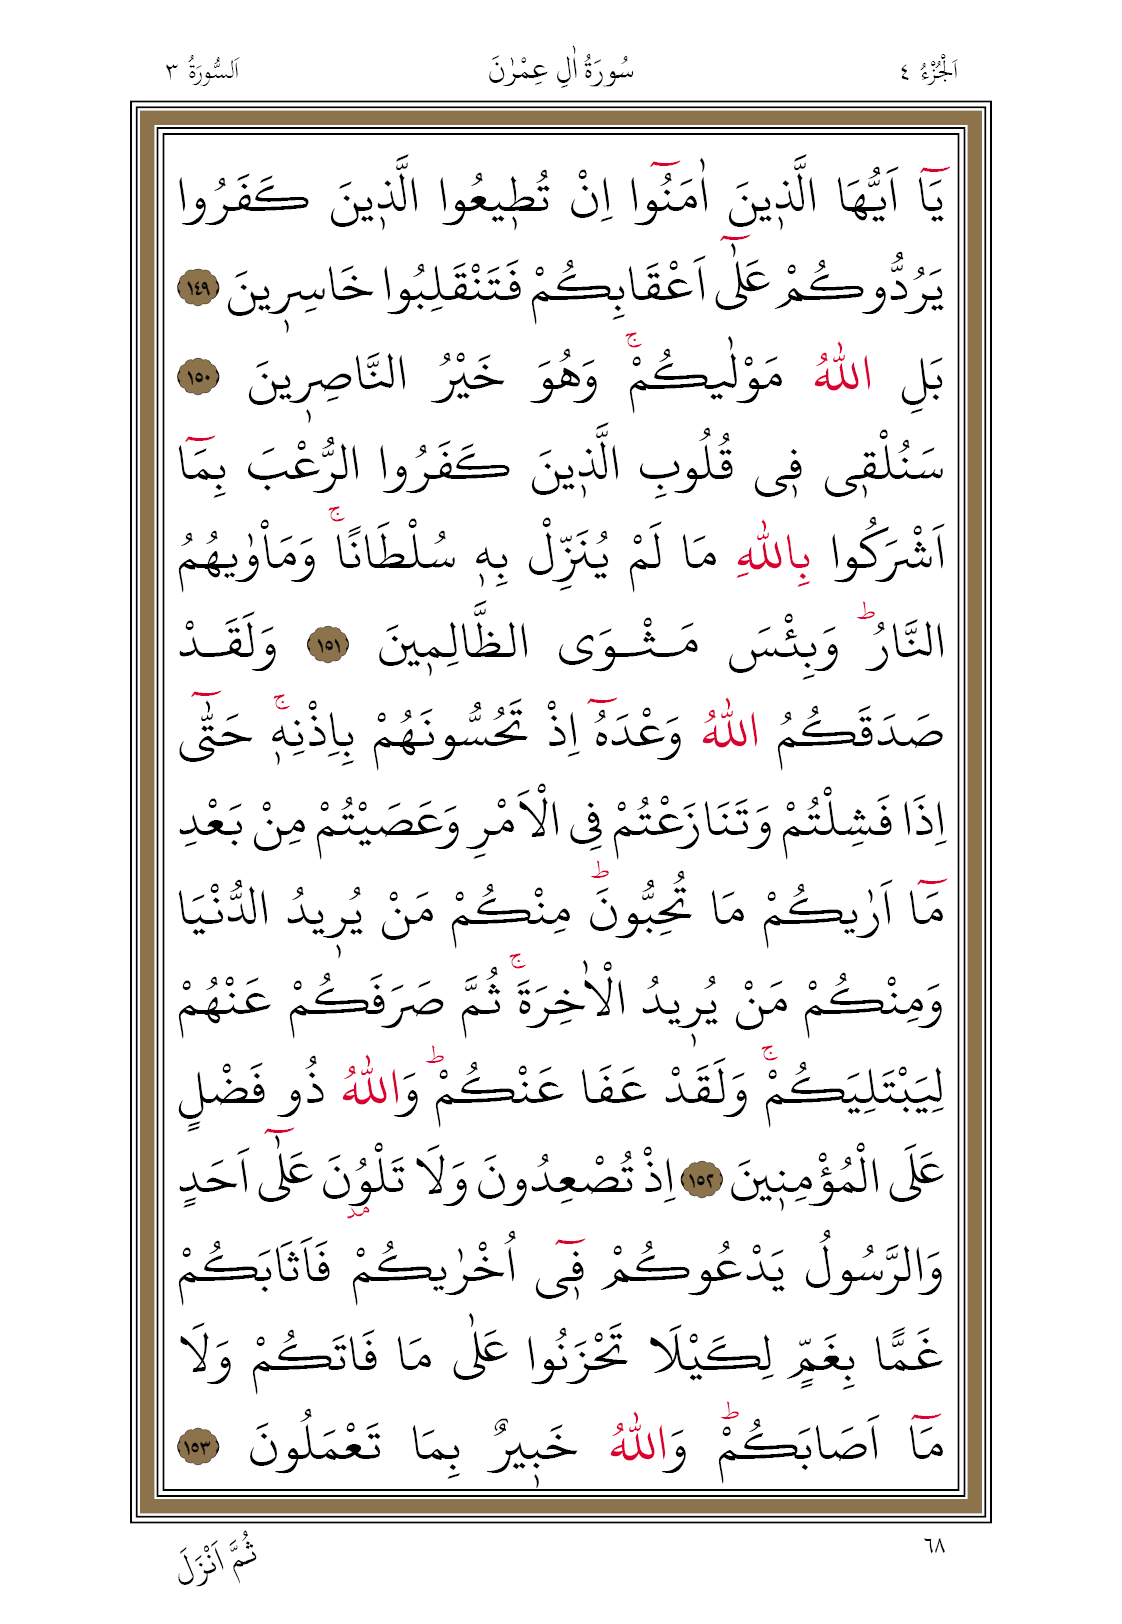 اَلْجُزْءُ ٤
سُورَةُ اٰلِ عِمْرٰنَ
اَلسُّورَةُ ٣
يَٓا اَيُّهَا الَّذ۪ينَ اٰمَنُٓوا اِنْ تُط۪يعُوا الَّذ۪ينَ كَفَرُوا
يَرُدُّوكُمْ عَلٰٓى اَعْقَابِكُمْ فَتَنْقَلِبُوا خَاسِر۪ينَ ١٤٩
بَلِ اللّٰهُ مَوْلٰيكُمْۚ وَهُوَ خَيْرُ النَّاصِر۪ينَ ١٥٠
سَنُلْق۪ي ف۪ي قُلُوبِ الَّذ۪ينَ كَفَرُوا الرُّعْبَ بِمَٓا
اَشْرَكُوا بِاللّٰهِ مَا لَمْ يُنَزِّلْ بِه۪ سُلْطَانًاۚ وَمَأْوٰيهُمُ
النَّارُۜ وَبِئْسَ مَثْوَى الظَّالِم۪ينَ ١٥١ وَلَقَدْ
صَدَقَكُمُ اللّٰهُ وَعْدَهُٓ اِذْ تَحُسُّونَهُمْ بِاِذْنِه۪ۚ حَتّٰٓى
اِذَا فَشِلْتُمْ وَتَنَازَعْتُمْ فِي الْاَمْرِ وَعَصَيْتُمْ مِنْ بَعْدِ
مَٓا اَرٰيكُمْ مَا تُحِبُّونَۜ مِنْكُمْ مَنْ يُر۪يدُ الدُّنْيَا
وَمِنْكُمْ مَنْ يُر۪يدُ الْاٰخِرَةَۚ ثُمَّ صَرَفَكُمْ عَنْهُمْ
لِيَبْتَلِيَكُمْۚ وَلَقَدْ عَفَا عَنْكُمْۜ وَاللّٰهُ ذُو فَضْلٍ
عَلَى الْمُؤْمِن۪ينَ ١٥٢ اِذْ تُصْعِدُونَ وَلَا تَلْوُ۫نَ عَلٰٓى اَحَدٍ
وَالرَّسُولُ يَدْعُوكُمْ ف۪ٓي اُخْرٰيكُمْ فَاَثَابَكُمْ
غَمًّا بِغَمٍّ لِكَيْلَا تَحْزَنُوا عَلٰى مَا فَاتَكُمْ وَلَا
مَٓا اَصَابَكُمْۜ وَاللّٰهُ خَب۪يرٌ بِمَا تَعْمَلُونَ ١٥٣
٦٨
ثُمَّ اَنْزَلَ